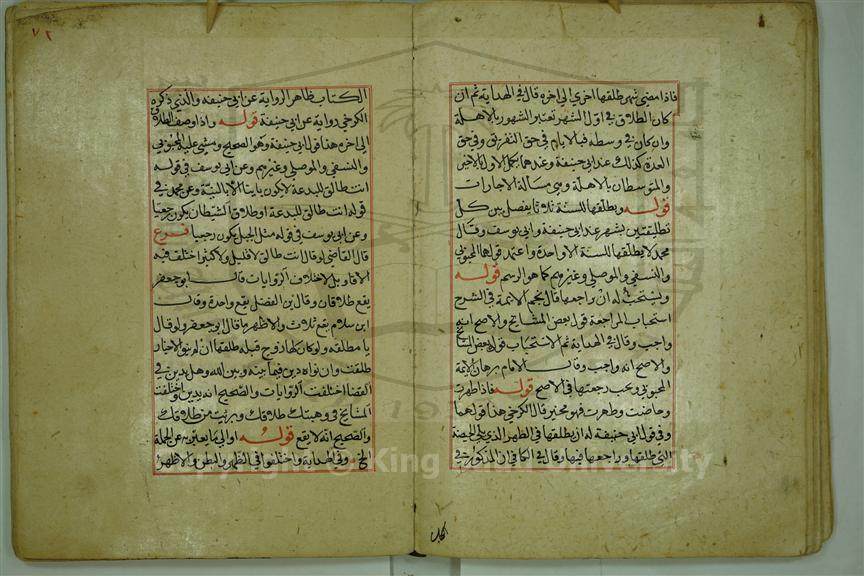 فاذا مضى شهر طلقها اخرى الى اخره قال في الهداية ثم ان
كان الطلاق في اول الشهر تعتبر الشهور بالاهلة
وان كان في وسطه فبالايام في حق التفريق وفي حق
العدة كذلك عند ابي حنيفة وعندهما يكمل الاول بالاخير
والمتوسطان بالاهلة وهي مسالة الاجارات
قوله ويطلقها للسنة ثلاثا يفصل بين كل
تطليقتين بشهر عند ابي حنيفة وابي يوسف وقال
محمد لا يطلقها للسنة الا واحدة واعتمد قولهما المحبوبي
والنسفي والموصلي وغيرهم كما هو الرسم قوله
ويستحب له ان يراجعها قال نجم الائمة في الشرح
استحباب المراجعة قول بعض المشايخ والاصح انه
واجب وقال في الهداية ثم الاستحباب قول بعض المشايخ
والاصح انه واجب وقال الامام برهان الائمة
المحبوبي ويجب رجعتها في الاصح قوله فاذا طهرت
وحاضت وطهرت فهو مخير قال الكرخي هذا قولهما
وفي قول ابي حنيفة له ان يطلقها في الطهر الذي يلي الحيضة
التي طلقها وراجعها فيها وقال في الكافي ان المذكور في
الكتاب
٧٢
الكتاب ظاهر الرواية عن ابي حنيفة والذي ذكره
الكرخي رواية عن ابي حنيفة قوله واذا وصف الطلاق
الى اخره هذا قول ابي حنيفة وهو الصحيح ومشى عليه المحبوبي
والنسفي والموصلي وغيرهم وعن ابي يوسف في قوله
انت طالق للبدعة لا يكون باينا الا بالنية وعن محمد في
قوله انت طالق للبدعة او طلاق الشيطان يكون رجعيا
وعن ابي يوسف في قوله مثل الجبل يكون رجعيا فرع
قال القاضي لو قال انت طالق لا قليل ولا كثير اختلف فيه
الاقاويل لاختلاف الروايات قال ابو جعفر
يقع طلاقان وقال بن الفضل يقع واحدة وقال
ابن سلام يقع ثلاث والاظهر ما قال ابو جعفر ولو قال
يا مطلقه ولو كان لها زوج قبله طلقها ان لم ينو الاخبار
طلقت وان نواه دين فيما بينه وبين الله وهل يدين في
القضا اختلفت الروايات والصحيح انه يدين واختلفت
المشايخ في وهبتك طلاقك وبريت من طلاقك
والصحيح انه لا يقع قوله او الى ما يعبر به عن الجملة
الخ وفي الهداية واختلفوا في الظهر والبطن والاظهر